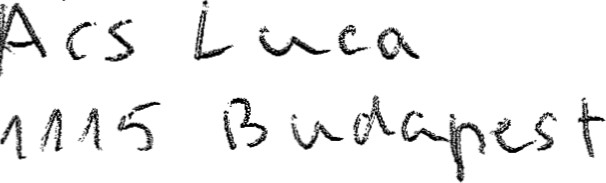 Acs Luca
1115 Budapest